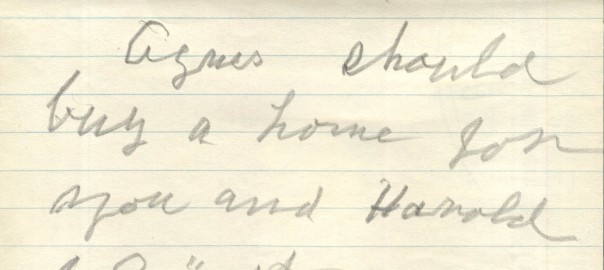 Agnes should
buy a home for
you and Harold